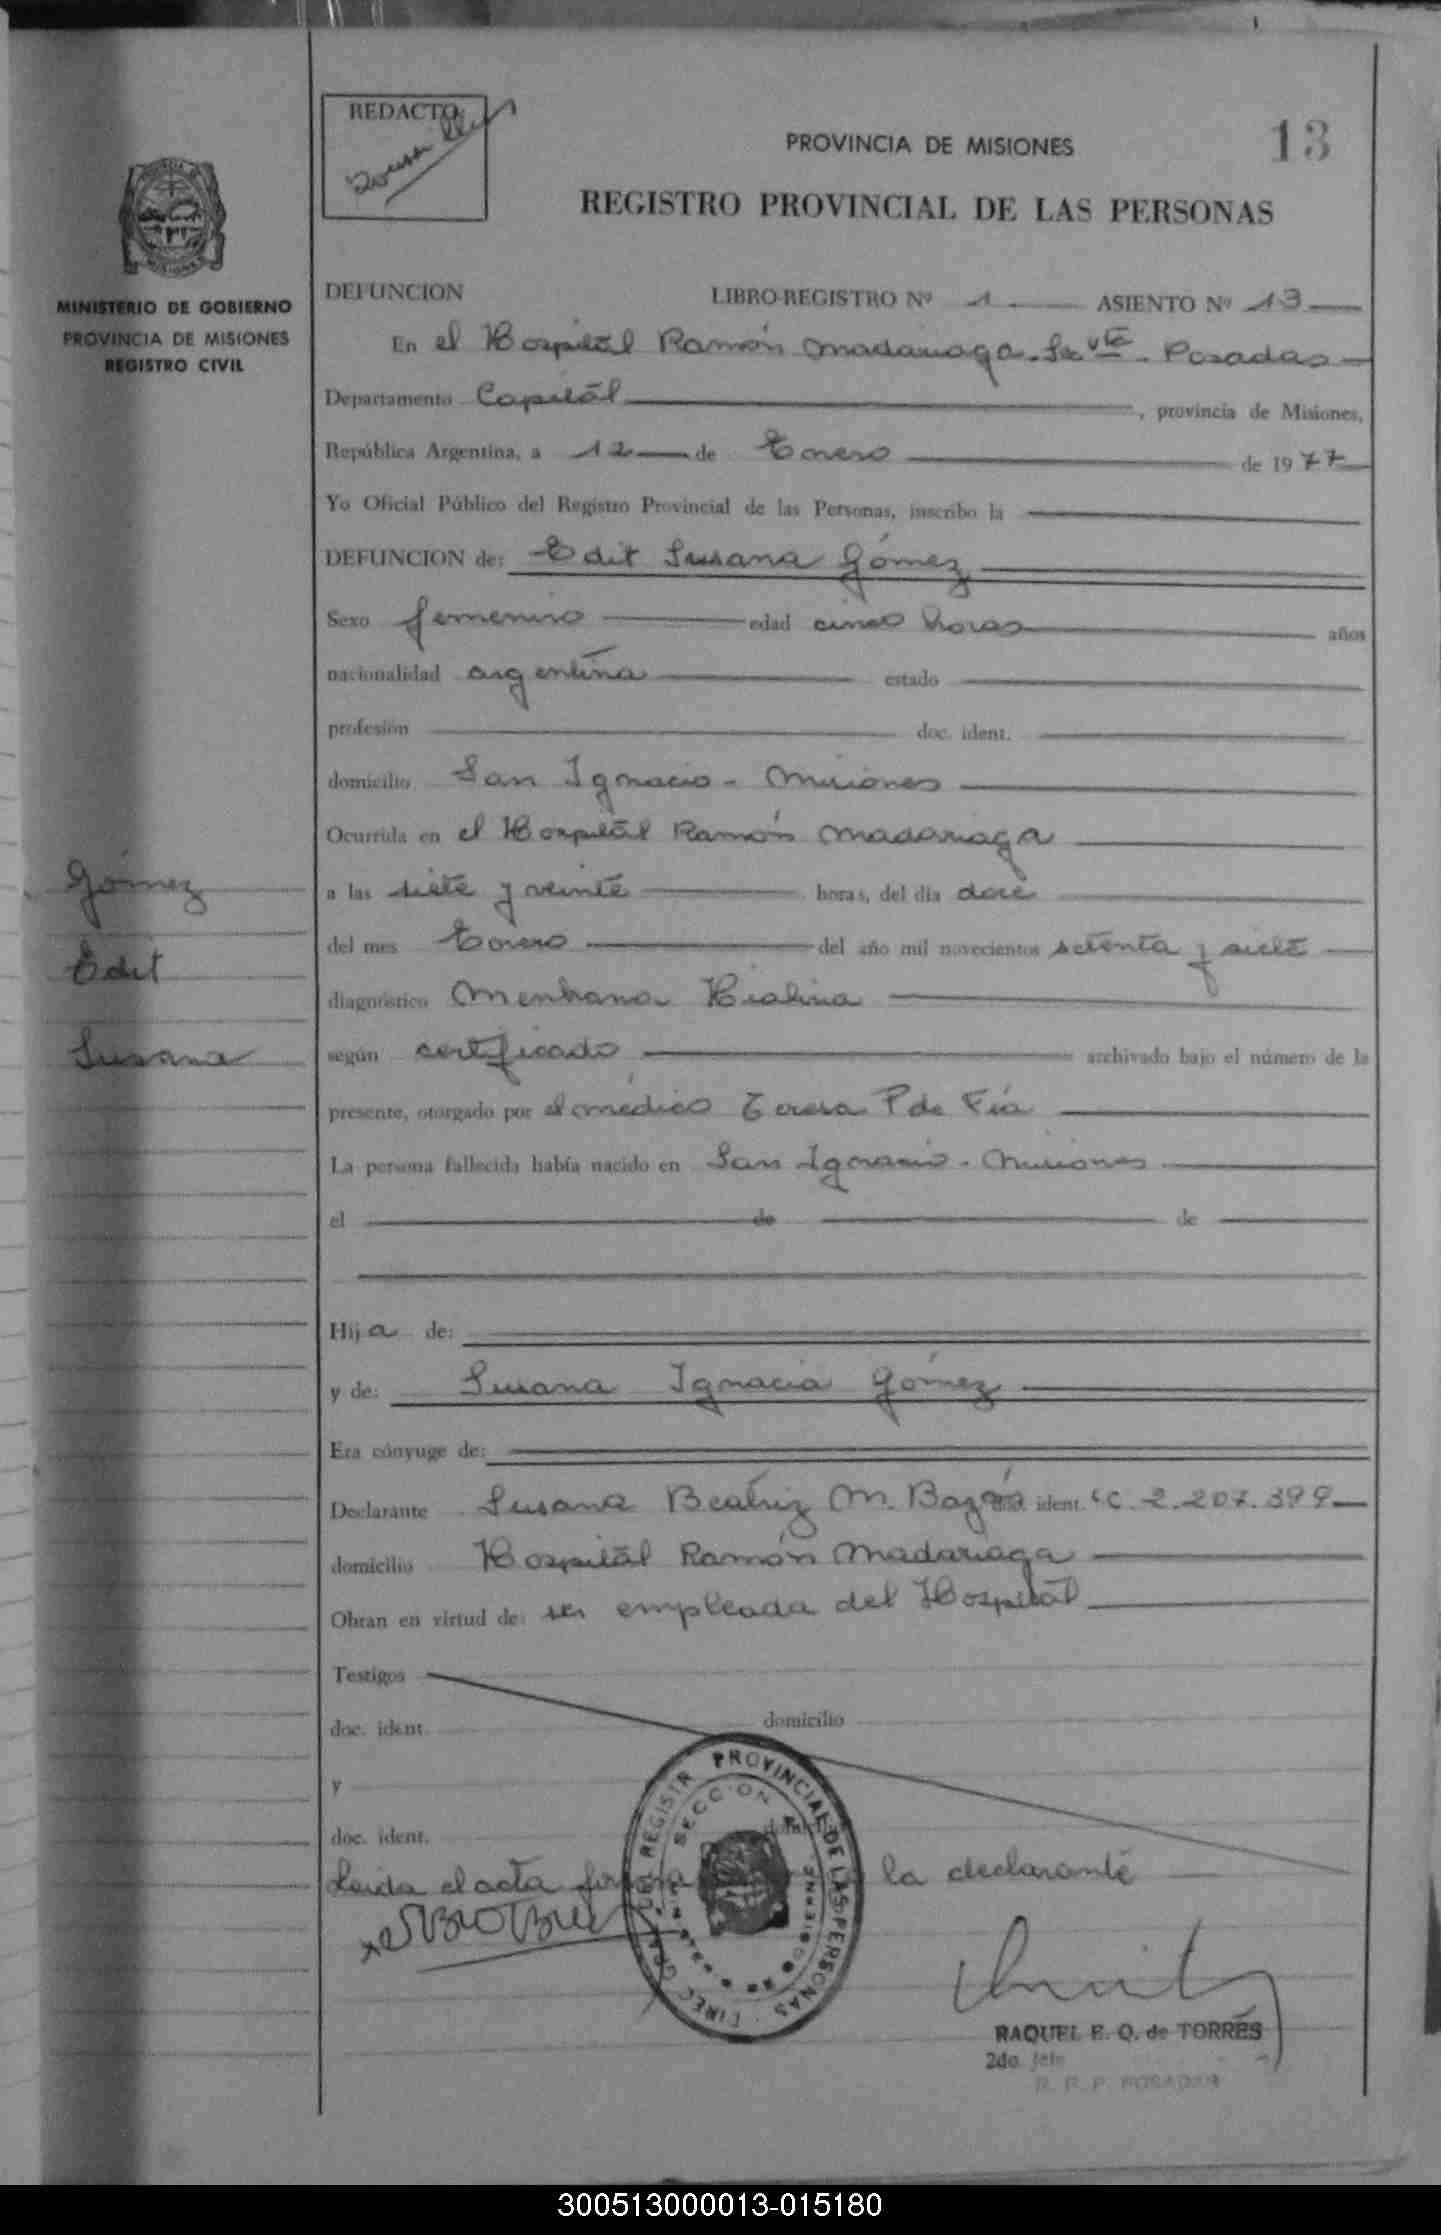 REDACTO
PROVINCIA DE MISIONES
13
REGISTRO PROVINCIAL DE LAS PERSONAS
MINISTERIO DE GOBIERNO
PROVINCIA DE MISIONES
REGISTRO CIVIL
DEFUNCION LIBRO-REGISTRO Nº 1 ASIENTO Nº 13
En el Hospitál Ramón Madariaga. Posadas
Departamento Capitál, provincia de Misiones,
República Argentina, a 12 de Enero de 1977
Yo Oficial Público del Registro Provincial de las Personas, inscribo la
DEFUNCION de: Edit Susana Gómez
Sexo femenino edad cinco horas años
nacionalidad argentina estado
profesión doc. ident.
domicilio San Ignacio - Misiones
Ocurrida en el Hospitál Ramón Madariaga
Gómez
a las siete y veinte horas, del día doce
del mes Enero del año mil novecientos setenta y siete
Edit
diagnóstico Menbrana Hialina
Susana
según certificado archivado bajo el número de la
presente, otorgado por el médico Teresa P de Fía
La persona fallecida había nacido en San Ignacio - Misiones
el de de
Hija de:
y de: Susana Ignacia Gómez
Era cónyuge de:
Declarante Susana Beatriz M. Bazán ident. C. 2.207.399
domicilio Hospitál Ramón Madariaga
Obran en virtud de: ser empleada del Hospitál
Testigos
doc. ident. domicilio
y
doc. ident. domicilio
Leida el acta firma la declarante
REGISTR PROVINCIAL DE LAS PERSONAS
SECCION
DIREC GRAL
RAQUEL E. O. de TORRES
2do. Jefe
R. R. P. POSADAS
300513000013-015180